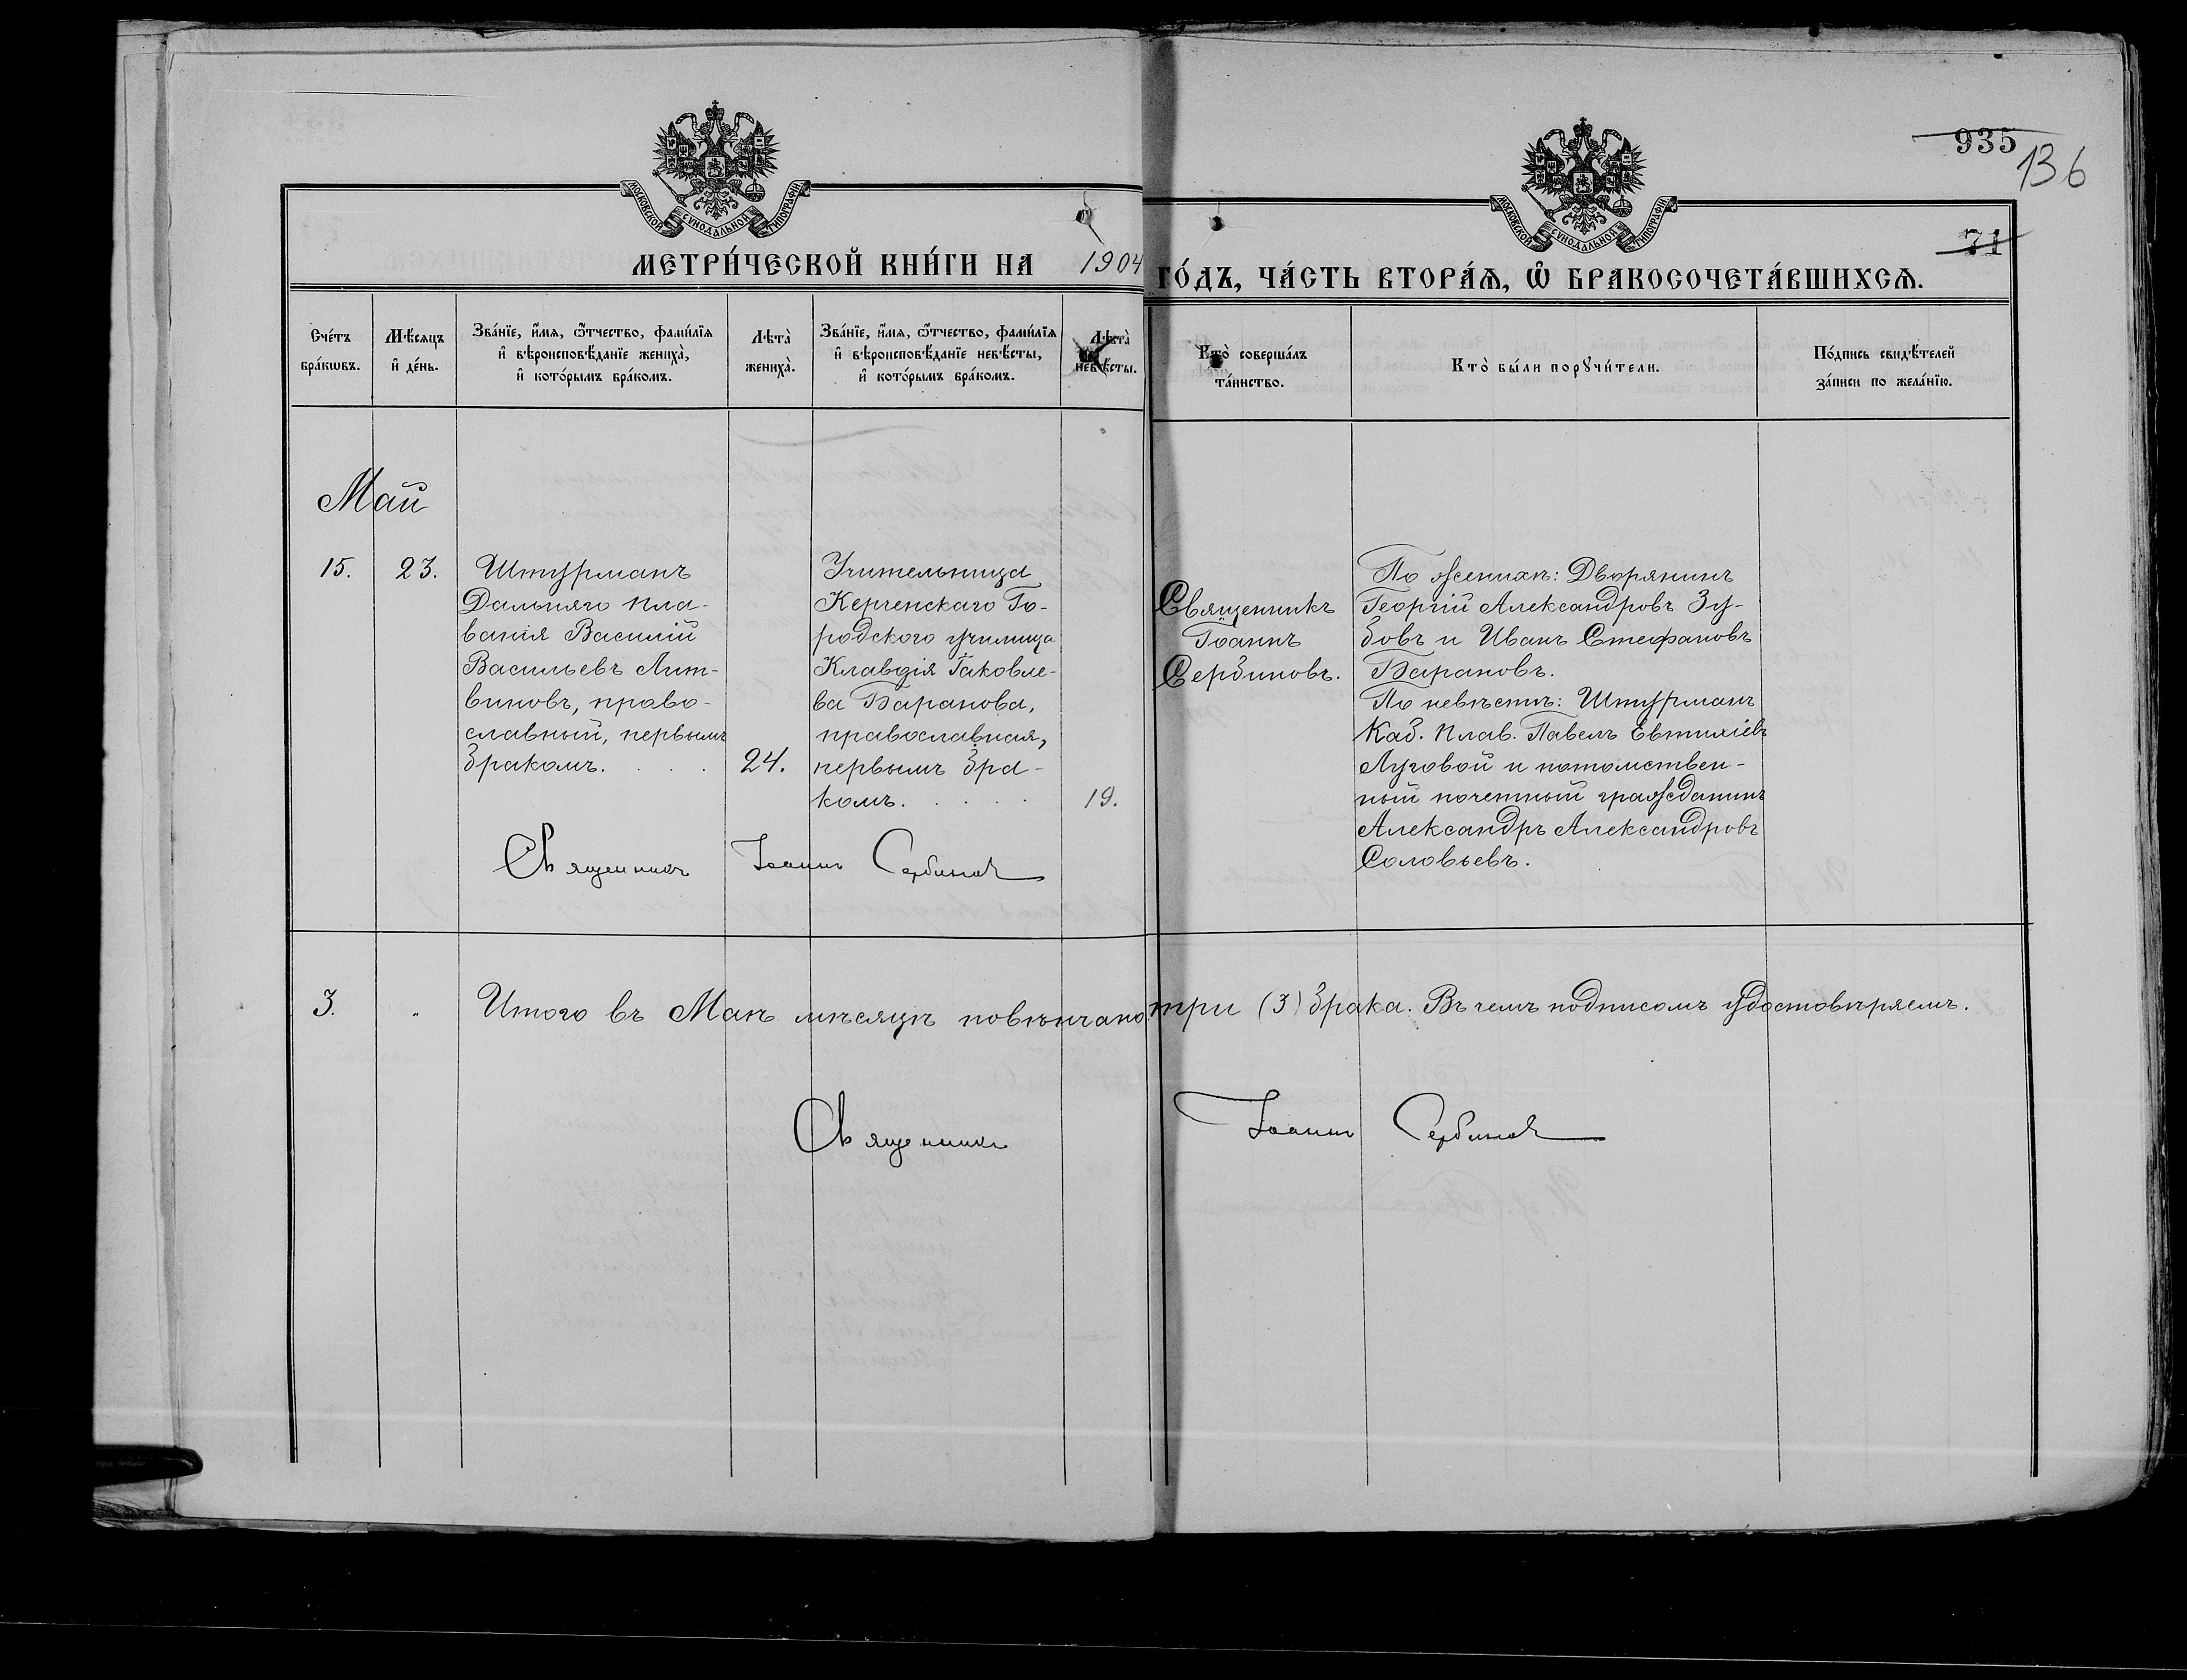 935
136
71
МОСКОВСКОЙ СѴНОДАЛЬНОЙ ТИПОГРАФІИ
МОСКОВСКОЙ СѴНОДАЛЬНОЙ ТИПОГРАФІИ
МЕТРИ́ЧЕСКОЙ КНИ́ГИ НА 1904 ГО́ДЪ, ЧА́СТЬ ВТОРА́Ѧ, Ѽ БРАКОСОЧЕТА́ВШИХСѦ.
Сче́тъ
бра́кѡвъ.
Мѣ́сяцъ
и҆ де́нь.
Зва́нїе, и҆́мя, ѻ҆́тчество, фами́лїя
и҆ вѣроисповѣ́данїе жениха̀,
и҆ кото́рымъ бра́комъ.
Лѣта̀
жениха̀.
Зва́нїе, и҆́мя, ѻ҆́тчество, фами́лїя
и҆ вѣроисповѣ́данїе невѣ́сты,
и҆ кото́рымъ бра́комъ.
Лѣта̀
невѣ́сты.
Кто̀ соверша́лъ
та́инство.
Кто̀ бы́ли порꙋчи́тели.
По́дпись свидѣ́телей
за́писи по жела́нїю.
Май
15.
23.
Штурманъ
Дальняго пла-
ванія Василій
Васильевъ Лит-
виновъ, право-
славный, первымъ
бракомъ. . . .
24.
Учительница
Керченскаго Го-
родского училища
Клавдія Іаковле-
ва Баранова,
православная,
первымъ бра-
комъ. . . . .
19.
Священникъ
Іоаннъ
Сербиновъ.
По женихѣ: Дворянинъ
Георгій Александровъ Зу-
бовъ и Иванъ Стефановъ
Барановъ.
По невѣстѣ: Штурманъ
Каб. Плав. Павелъ Евтихіевъ
Луговой и потомствен-
ный почетный гражданинъ
Александръ Александровъ
Соловьевъ.
Священникъ Іоаннъ Сербиновъ
3. „ Итого въ Маѣ мѣсяцѣ повѣнчано три (3) брака. Въ чемъ подписомъ удостовѣряемъ.
Священникъ Іоаннъ Сербиновъ